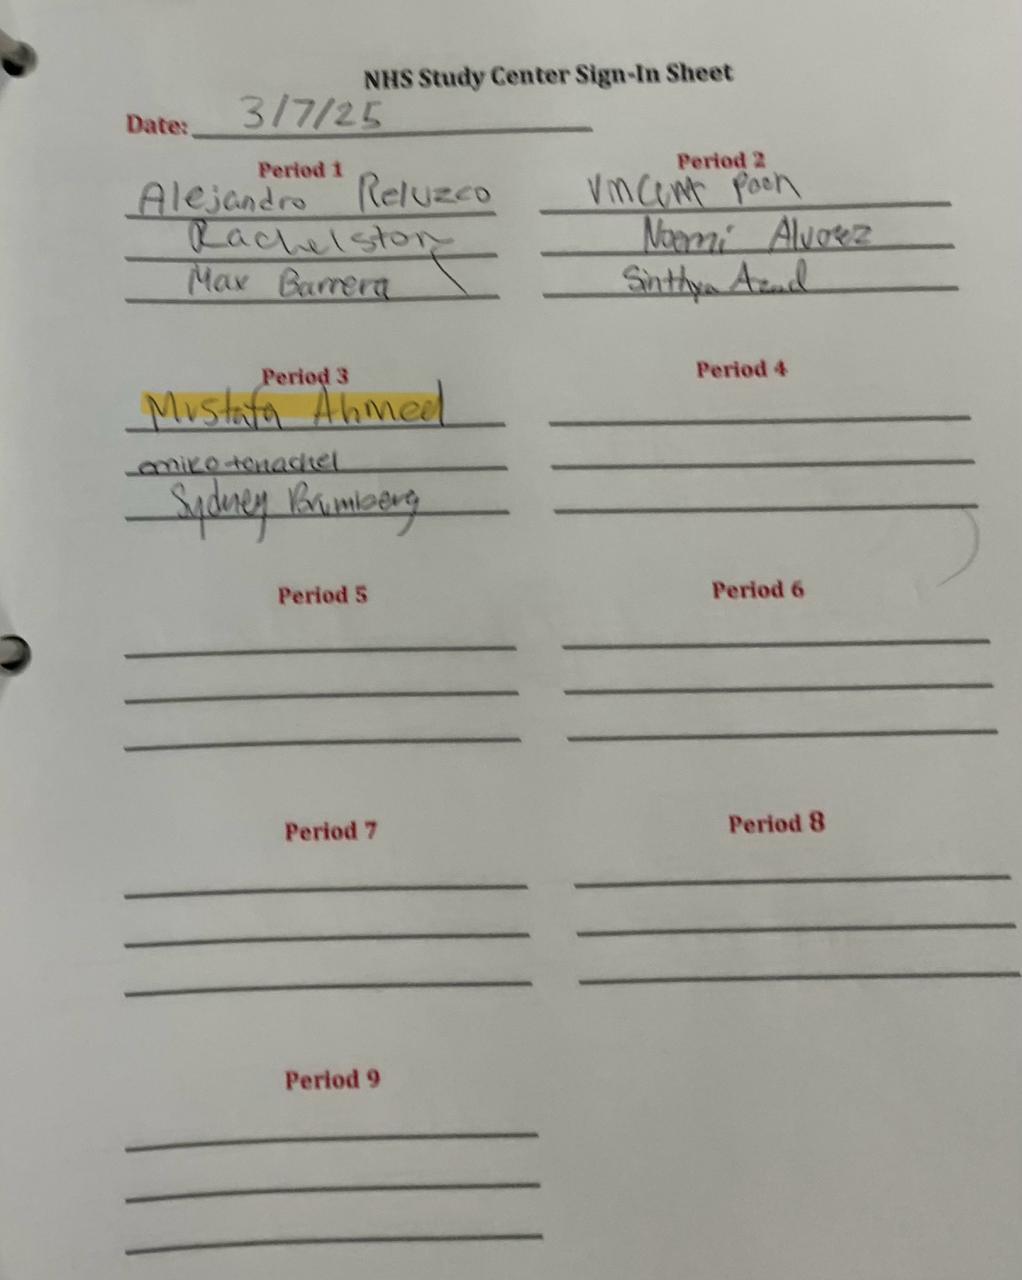 NHS Study Center Sign-In Sheet
Date: 3/7/25
Period 1
Alejandro Reluzco
Rachel story
Max Barrera
Period 2
Vincent Poon
Noemi Alvarez
Sinthya Azad
Period 3
Mustafa Ahmed
emiko
Sydney Brumberg
Period 4
Period 5
Period 6
Period 7
Period 8
Period 9